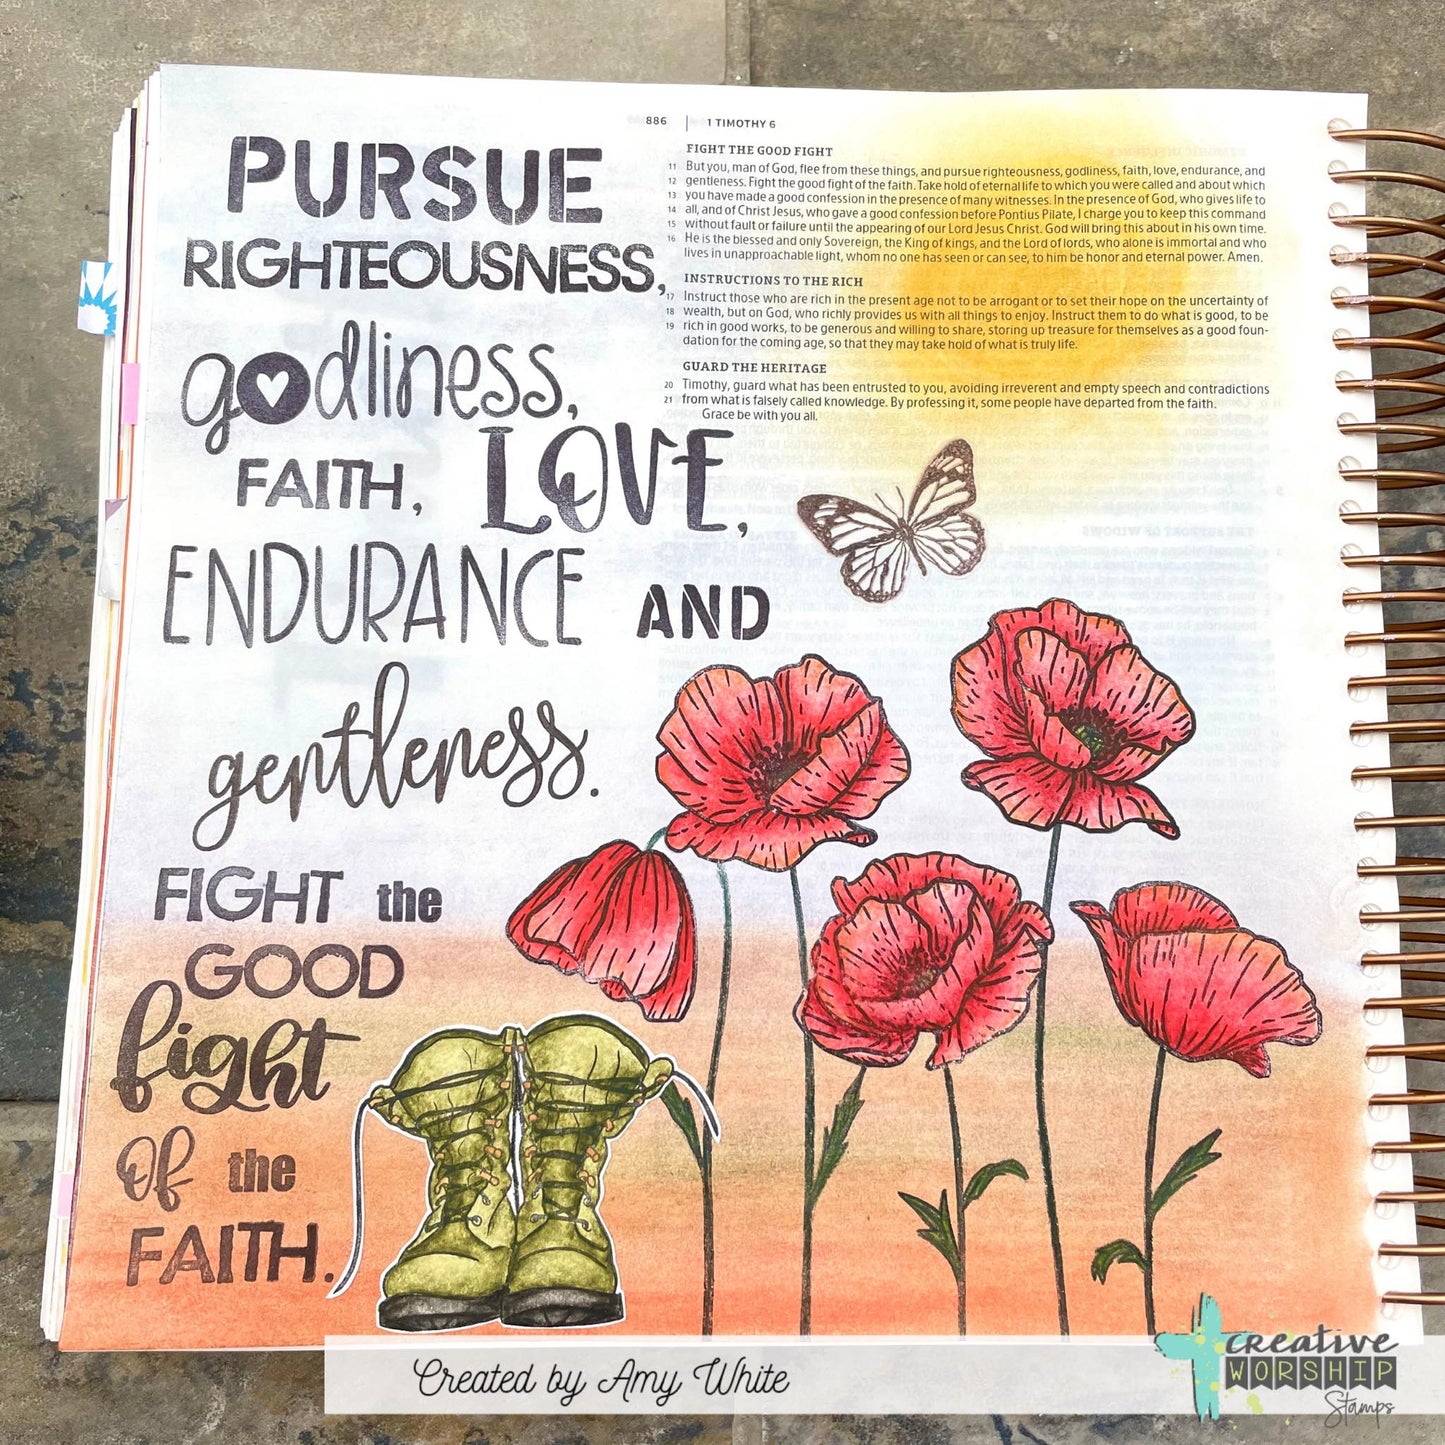 PURSUE
RIGHTEOUSNESS,
godliness,
FAITH, LOVE,
ENDURANCE AND
gentleness.
FIGHT the
GOOD
fight
of the
FAITH.
886 | 1 TIMOTHY 6
FIGHT THE GOOD FIGHT
11 But you, man of God, flee from these things, and pursue righteousness, godliness, faith, love, endurance, and
12 gentleness. Fight the good fight of the faith. Take hold of eternal life to which you were called and about which
13 you have made a good confession in the presence of many witnesses. In the presence of God, who gives life to
14 all, and of Christ Jesus, who gave a good confession before Pontius Pilate, I charge you to keep this command
15 without fault or failure until the appearing of our Lord Jesus Christ. God will bring this about in his own time.
16 He is the blessed and only Sovereign, the King of kings, and the Lord of lords, who alone is immortal and who
lives in unapproachable light, whom no one has seen or can see, to him be honor and eternal power. Amen.
INSTRUCTIONS TO THE RICH
17 Instruct those who are rich in the present age not to be arrogant or to set their hope on the uncertainty of
18 wealth, but on God, who richly provides us with all things to enjoy. Instruct them to do what is good, to be
19 rich in good works, to be generous and willing to share, storing up treasure for themselves as a good foun-
dation for the coming age, so that they may take hold of what is truly life.
GUARD THE HERITAGE
20 Timothy, guard what has been entrusted to you, avoiding irreverent and empty speech and contradictions
21 from what is falsely called knowledge. By professing it, some people have departed from the faith.
Grace be with you all.
Created by Amy White
creative
WORSHIP
Stamps